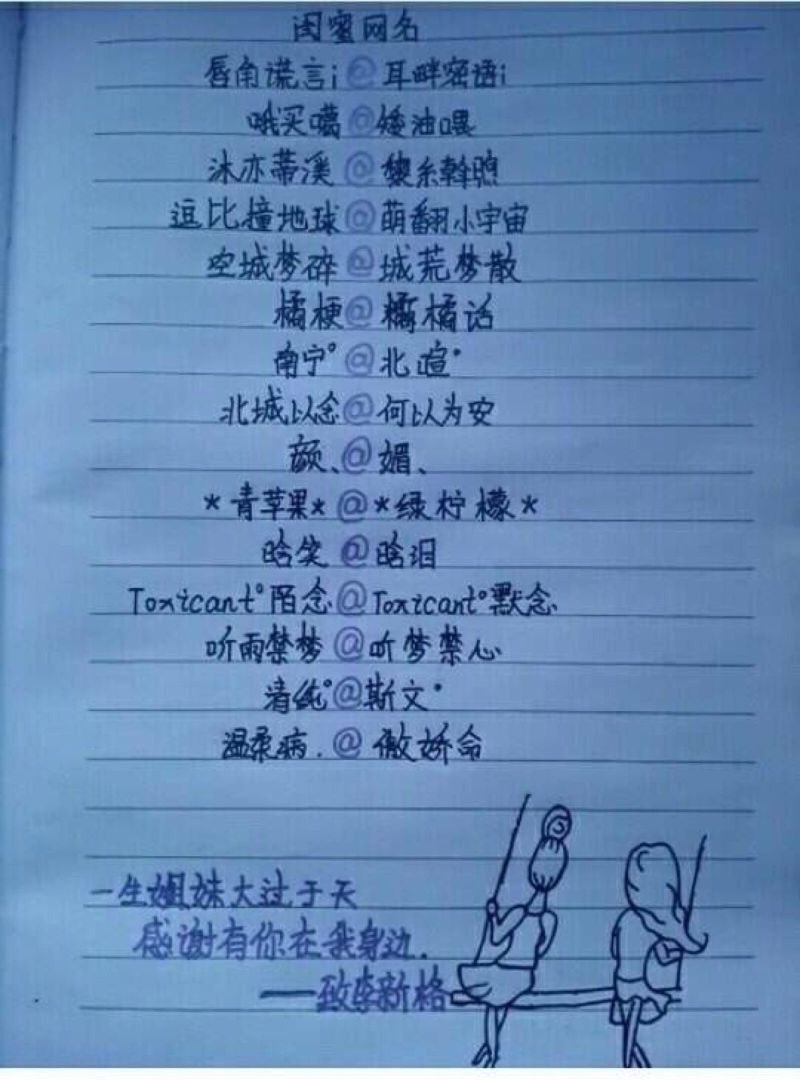 闺蜜网名
唇角谎言i@耳畔密语i
哦买噶@矮油喂
沐亦蒂溪@黎糸斡煦
逗比撞地球@萌翻小宇宙
空城梦碎@城荒梦散
橘梗@橘话
南宁°@北喧°
北城以念@何以为安
颜、@媚、
*青苹果*@*绿柠檬*
晗笑@晗泪
Toxicant°陌念@Toxicant°默念
听雨禁梦@听梦禁心
清纯°@斯文°
温柔病.@傲娇命
一生姐妹大过于天
感谢有你在我身边.
——致李新格